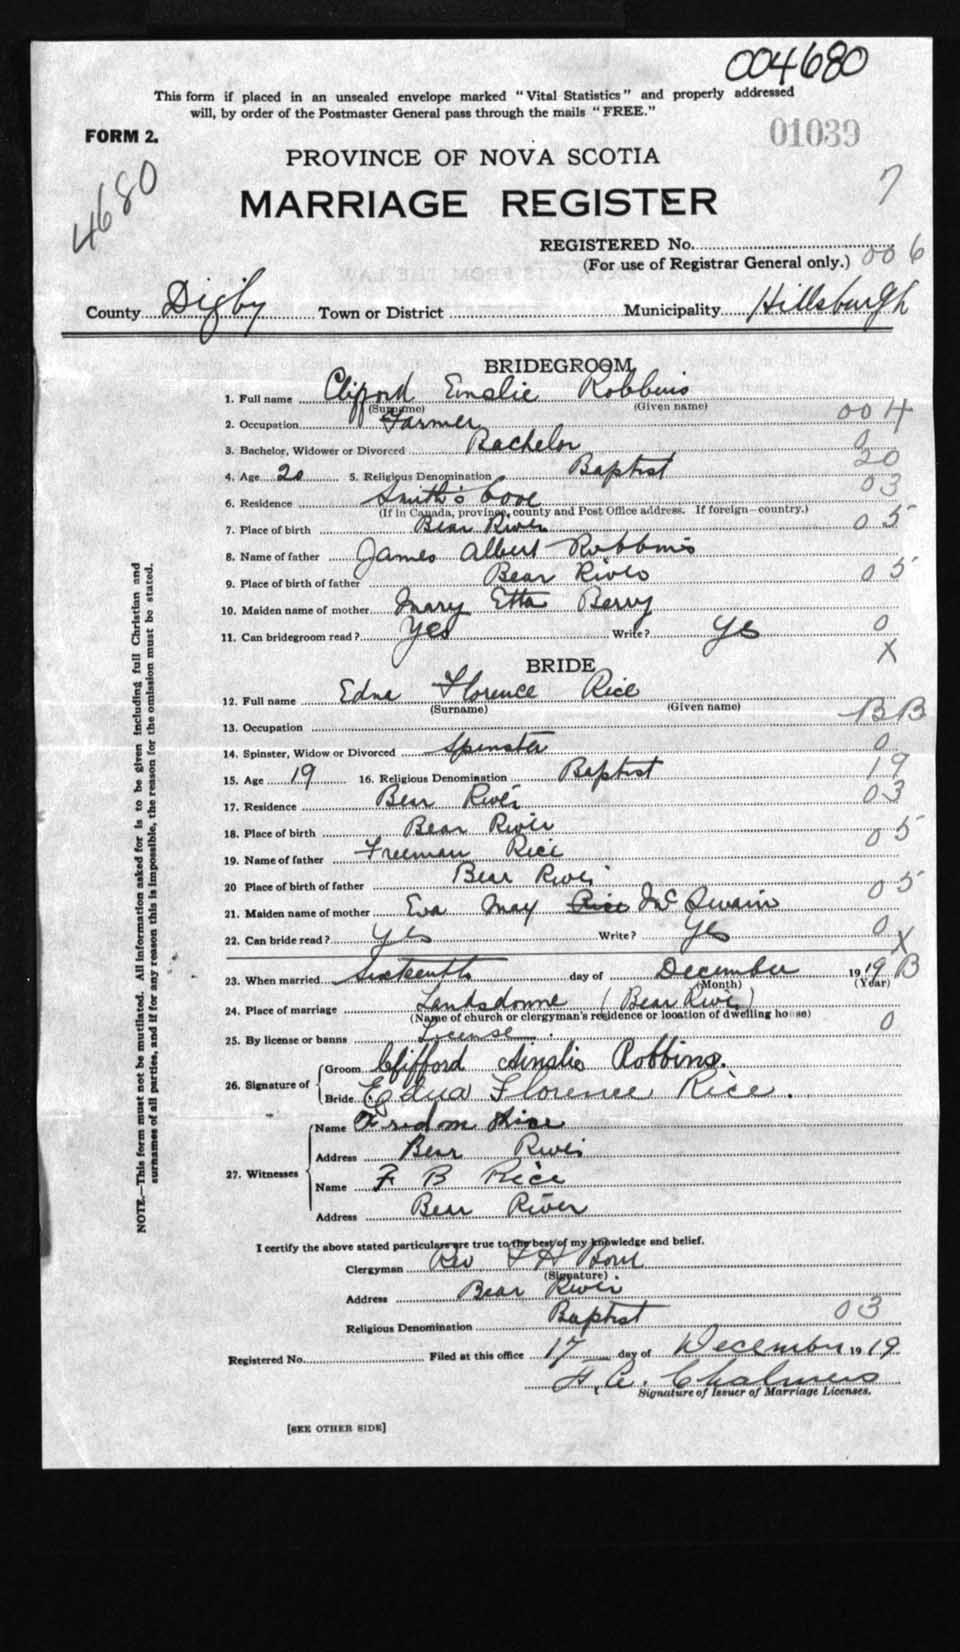 004680
This form if placed in an unsealed envelope marked "Vital Statistics" and properly addressed
will, by order of the Postmaster General pass through the mails "FREE."
FORM 2.
01039
4680
PROVINCE OF NOVA SCOTIA
7
MARRIAGE REGISTER
REGISTERED No.
(For use of Registrar General only.) 006
County Digby Town or District Municipality Hillsburgh
BRIDEGROOM
1. Full name Clifford Einslie Robbins
(Surname) (Given name)
2. Occupation Farmer 004
3. Bachelor, Widower or Divorced Bachelor 0
4. Age 20 5. Religious Denomination Baptist 20
6. Residence Smith's Cove 03
(If in Canada, province, county and Post Office address. If foreign—country.)
7. Place of birth Bear River 05
8. Name of father James Albert Robbins
9. Place of birth of father Bear River 05
10. Maiden name of mother Mary Etta Berry
11. Can bridegroom read? Yes Write? Yes 0
X
BRIDE
12. Full name Edna Florence Rice
(Surname) (Given name)
13. Occupation BB
14. Spinster, Widow or Divorced Spinster 0
15. Age 19 16. Religious Denomination Baptist 19
17. Residence Bear River 03
18. Place of birth Bear River 05
19. Name of father Freeman Rice
20 Place of birth of father Bear River 05
21. Maiden name of mother Eva May Rice McSwain
22. Can bride read? Yes Write? Yes 0
X
23. When married Sixteenth day of December 1919 B
(Month) (Year)
24. Place of marriage Landsdowne (Bear River)
(Name of church or clergyman's residence or location of dwelling house)
25. By license or banns License 0
26. Signature of Groom Clifford Ainslie Robbins.
Bride Edna Florence Rice.
27. Witnesses Name Rice
Address Bear River
Name F B Rice
Address Bear River
I certify the above stated particulars are true to the best of my knowledge and belief.
Clergyman Rev
(Signature)
Address Bear River
Religious Denomination Baptist 03
Registered No. Filed at this office 17 day of December 1919.
H. A. Chalmers
Signature of Issuer of Marriage Licenses.
[SEE OTHER SIDE]
NOTE.—This form must not be mutilated. All information asked for is to be given including full Christian and
surnames of all parties, and if for any reason this is impossible, the reason for the omission must be stated.